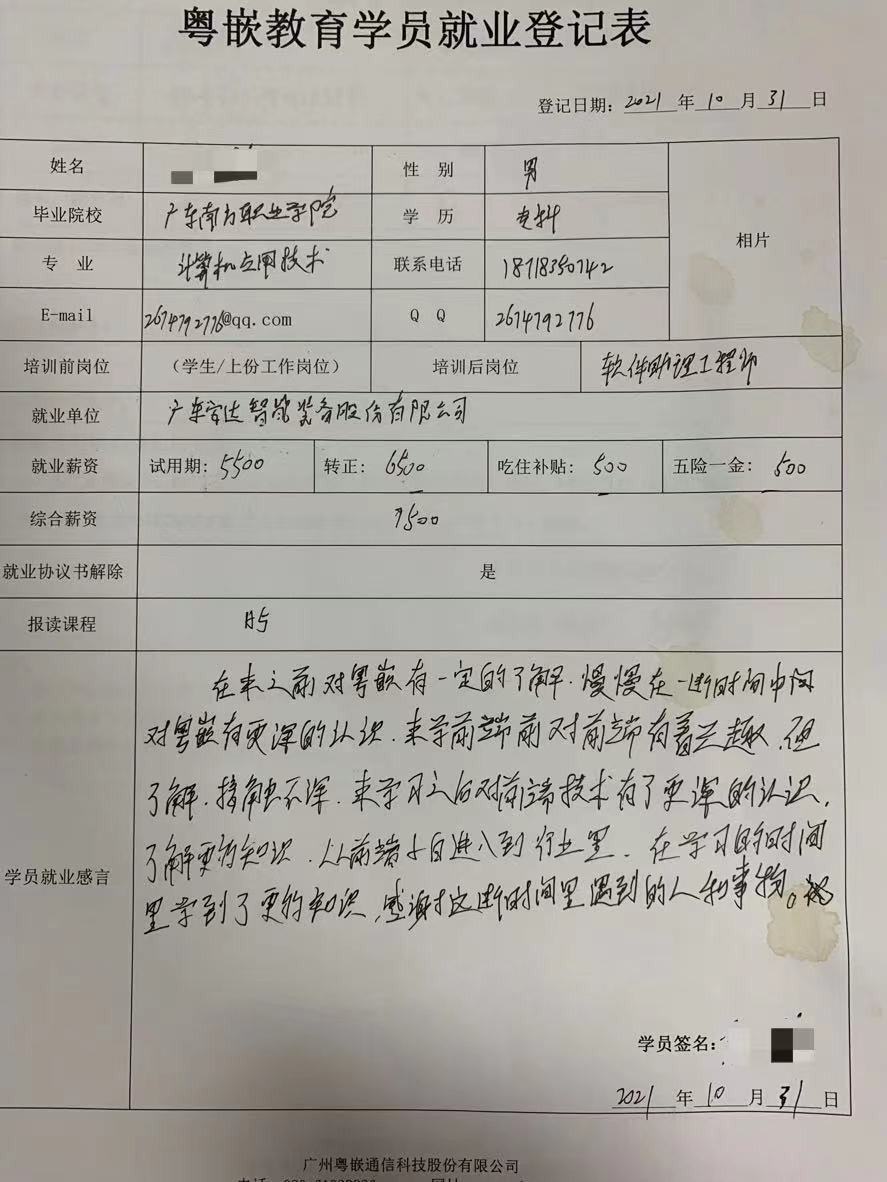 粤嵌教育学员就业登记表
登记日期：2021 年 10 月 31 日
姓名 性 别 男
毕业院校 广东南方职业学院 学 历 专科
相片
专 业 计算机应用技术 联系电话 18718350742
E-mail 2674792776@qq.com Q Q 2674792776
培训前岗位 （学生/上份工作岗位） 培训后岗位 软件助理工程师
就业单位 广东宏达智能装备股份有限公司
就业薪资 试用期：5500 转正：6500 吃住补贴：500 五险一金：500
综合薪资 7500
就业协议书解除 是
报读课程 H5
在来之前对粤嵌有一定的了解.慢慢在一断时间中间
对粤嵌有更深的认识.来学前端前对前端有着兴趣,但
了解.接触不深.来学习之后对前端技术有了更深的认识,
了解更多知识.从前端小白进入到行业里.在学习的时间
学员就业感言
里学到了更多知识,感谢这断时间里遇到的人和事物。
学员签名：
2021 年 10 月 31 日
广州粤嵌通信科技股份有限公司